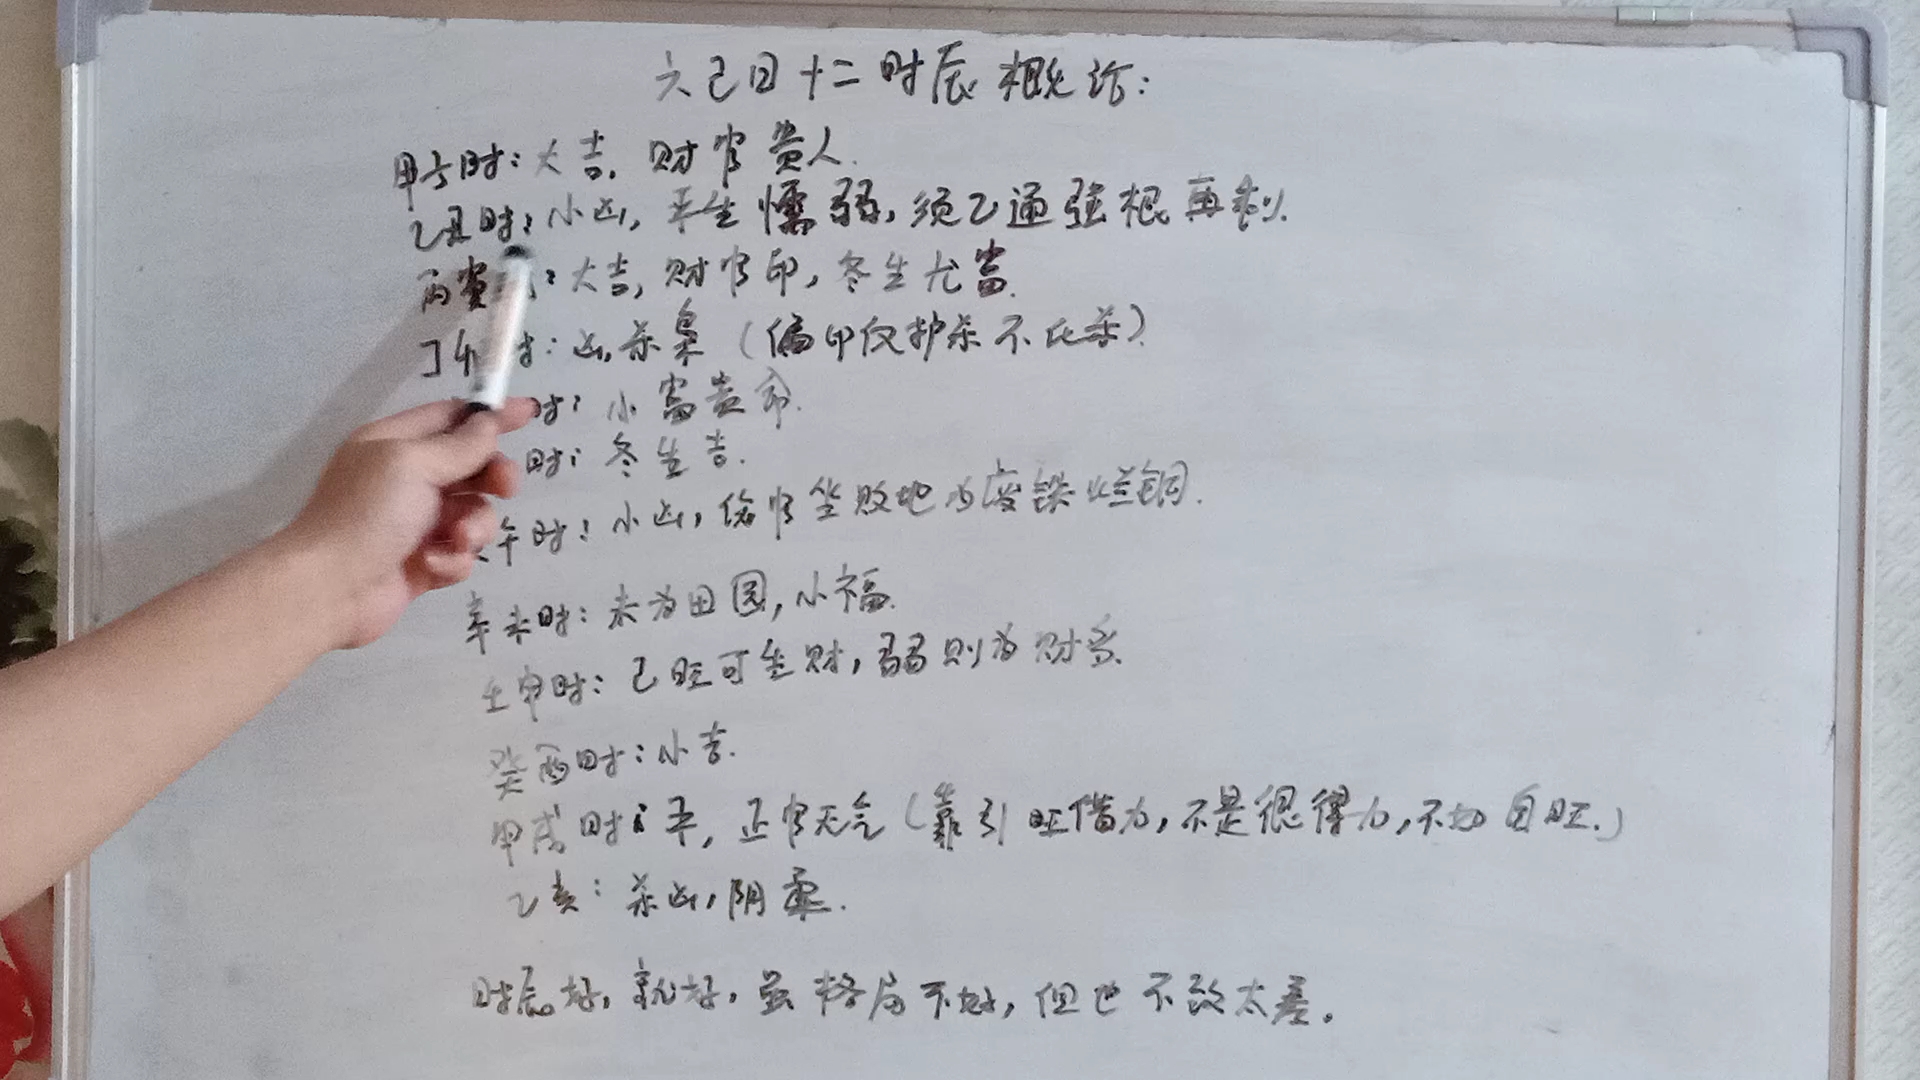 六己日十二时辰概论:
甲子时:大吉,财官贵人.
乙丑时:小凶,平生懦弱,须乙通强根再制.
丙寅 :大吉,财官印,冬生尤富.
丁卯时:凶,杀枭(偏印仅护杀不化杀).
时:小富贵命.
时:冬生吉.
午时:小凶,伤官坐败地为废铁烂铜.
辛未时:未为田园,小福.
壬申时:己旺可生财,弱则为财多.
癸酉时:小吉.
甲戌时:平,正官无气(靠引旺借力,不是很得力,不如自旺.)
乙亥:杀凶,阴柔.
时辰好,就好,虽格局不好,但也不致太差。